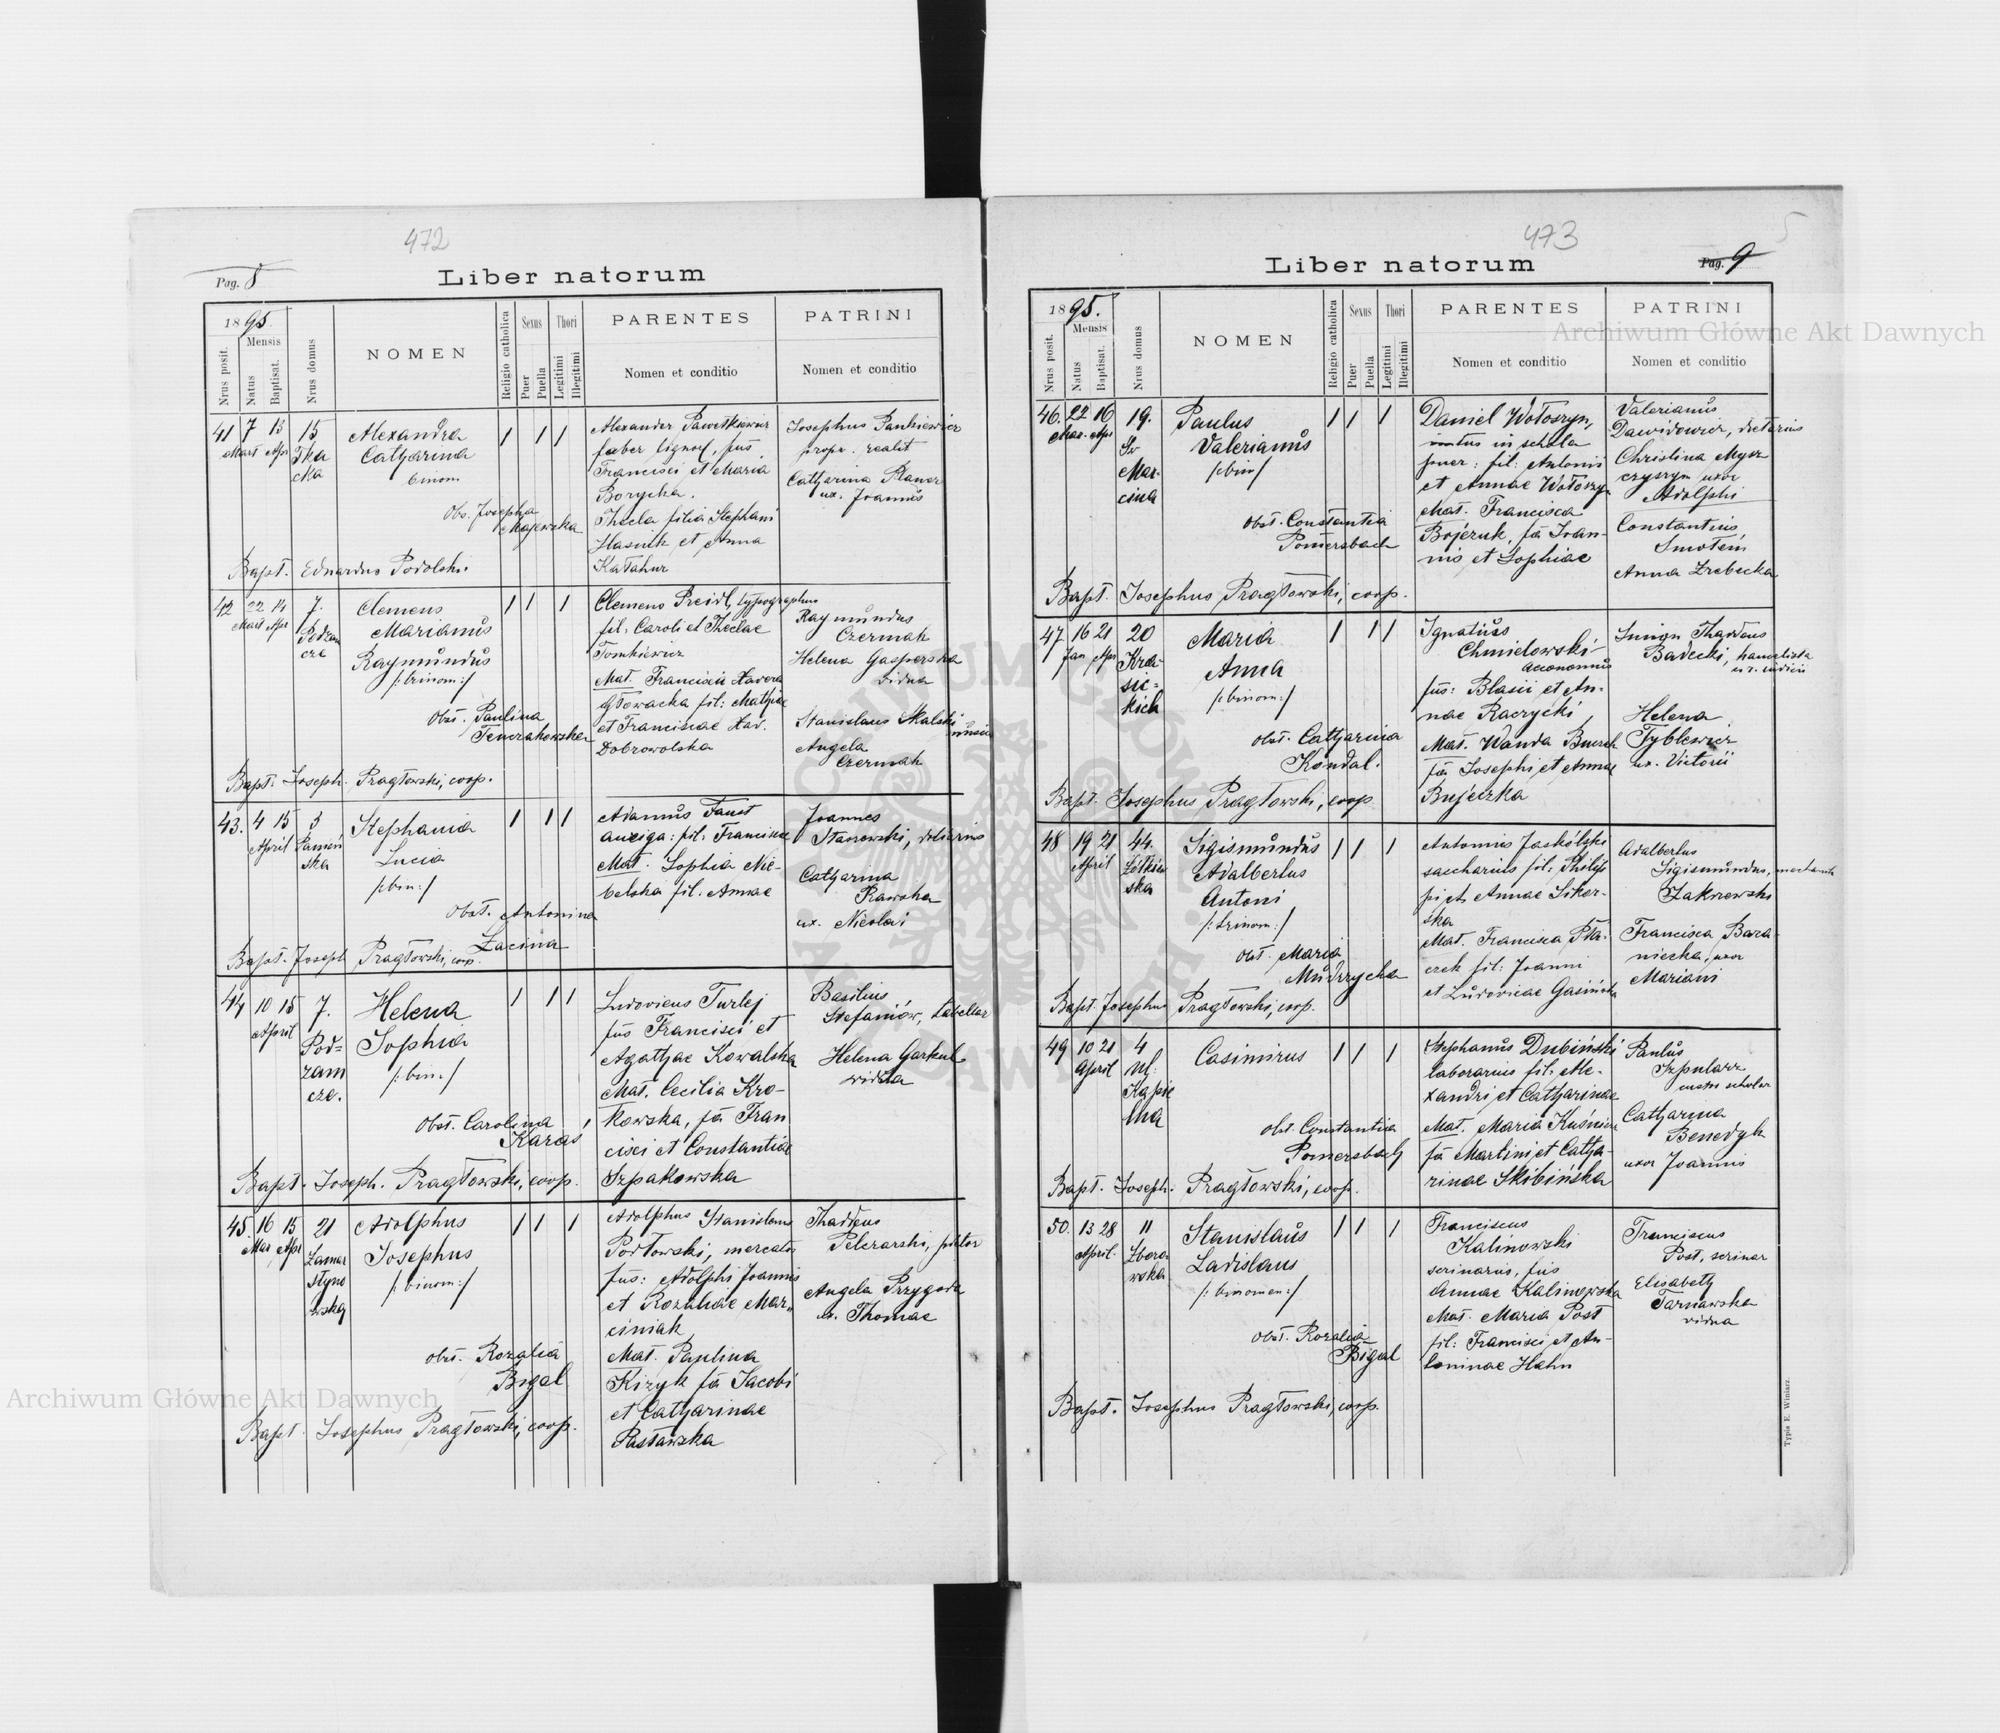 472
Pag. 8
Liber natorum
1895.
Nrus posit.
Mensis
Natus
Baptisat.
Nrus domus
NOMEN
Religio catholica
Sexus
Puer
Puella
Thori
Legitimi
Illegitimi
PARENTES
Nomen et conditio
PATRINI
Nomen et conditio
41 7 15 15
Mart Apr
Alexandra
Catharina
binom.
Obs. Josepha
Majewska
Bapt. Eduardus Podolski
Alexander Pawełkiewicz
faber lignar, fus
Francisci et Maria
Borycka.
Thecla filia Stephani
Hasiuk et Anna
Katahur
Josephus Pankiewicz
propr. realit
Catharina
ux. Joannis
42 22 14 7.
Mart Apr
Podzam
cze
Clemens
Marianus
Raymundus
/:trinom:/
Obst. Paulina
Bapt. Joseph. Pragłowski, coop.
Clemens Preidl, typographus
fil. Caroli et Theclae
Tomkiewicz
Mat. Francisca Xavera
Głowacka fil: Mathiae
et Franciscae Xav.
Dobrowolska
Raymundus
Czermak
Helena Gasperska
vidua
Stanislaus Skalski
Angela
Czermak
43. 4 15 5
April
Stephania
Lucia
/:bin:/
Obst. Antonina
Zacina
Bapt. Joseph Pragłowski, coop.
Adamus Faust
auriga: fil. Franciscae
Mat. Sophia Nie-
belska fil. Annae
Joannes
Catharina
Rawska
ux. Nicolai
44 10 15 7.
April
Pod=
zam
cze.
Helena
Sophia
/:bin:/
Obst. Carolina
Karaś
Bapt. Joseph. Pragłowski, coop.
Ludovicus Turlej
fus Francisci et
Agathae Kowalska
Mat. Cecilia Kro-
kowska, fa Fran
cisci et Constantiae
Szpakowska
Basilius
Stefaniów, tabellar
Helena Garkul
vidua
45. 16 15 21
Mar Apr
Zamar
styno
wska
Adolphus
Josephus
/:binom:/
obst. Rozalia
Bigel
Bapt. Josephus Pragłowski, coop.
Adolphus Stanislaus
Podłowski, mercator
fus: Adolphi Joannis
et Rozaliae Mar-
ciniak
Mat. Paulina
Kizyk fa Jacobi
et Catharinae
Pastawska
Thaddeus
Pelczarski, pistor
Angela Przygoda
ux. Thomae
473
5
Liber natorum
Pag. 9
1895.
Nrus posit.
Mensis
Natus
Baptisat.
Nrus domus
NOMEN
Religio catholica
Sexus
Puer
Puella
Thori
Legitimi
Illegitimi
PARENTES
Nomen et conditio
PATRINI
Nomen et conditio
46. 22 16 19.
Mar. Apr
Sw
Mar-
cina
Paulus
Valerianus
/:bin:/
Obst. Constantia
Pomersbach
Bapt. Josephus Pragłowski, coop.
Daniel Wołoszyn,
in schola
puer: fil: Antonii
et Annae Wołoszyn
Mat. Francisca
Bojczuk, fa Joan-
nis et Sophiae
Valerianus
Dawidowicz, dietarius
Christina Mysz
czyszyn uxor
Adolphi
Constantius
Smoteń
Anna Zrebecka
47 16 21 20
Jan Apr
Kra-
sic-
kich
Maria
Anna
/:binom:/
obst. Catharina
Kondal.
Bapt. Josephus Pragłowski, coop
Ignatius
Chmielowski
aeconomus
fus: Blasii et An-
nae Raczycki
Mat. Wanda
fa Josephi et Annae
Bujeczka
Thaddeus
Badecki, kancelista
Helena
Tyblewicz
ux. Victorii
48 19 21 44.
April
Żółkiew
ska
Sigismundus
Adalbertus
Antoni
/:trinom:/
obst. Maria
Mudrzycka
Bapt. Josephus Pragłowski, coop.
Antonius Jaskólski
fil: Philip
pi et Annae Siker-
ska
Mat. Francisca Pta-
czek fil: Joanni
et Ludovicae Gasińska
Adalbertus
Sigismundus,
Zakrzewski
Francisca Bara-
niecka, uxor
Mariani
49 10 21 4
April
Ul.
Kąpie
lna
Casimirus
obst. Constantia
Pomersbach
Bapt. Joseph. Pragłowski, coop.
Stephanus Dubiński
laborarius fil. Ale-
xandri et Catharinae
Mat. Maria Kuśnierz
fa Martini et Catha-
rinae Skibińska
Paulus
Szpularz
custos scholar
Catharina
Benedyk
uxor Joannis
50. 13 28 11
April
Zboro
wska
Stanislaus
Ladislaus
/:binomen:/
Obst. Rozalia
Bigel
Bapt. Josephus Pragłowski, coop.
Franciscus
Kalinowski
serinarius, fus
Annae Kalinowska
Mat. Maria Post
fil: Francisci et An-
toninae Hahn
Franciscus
Post, serinar
Elisabeth
Tarnawska
vidua
Typis E. Winiarz.
Archiwum Główne Akt Dawnych
Archiwum Główne Akt Dawnych